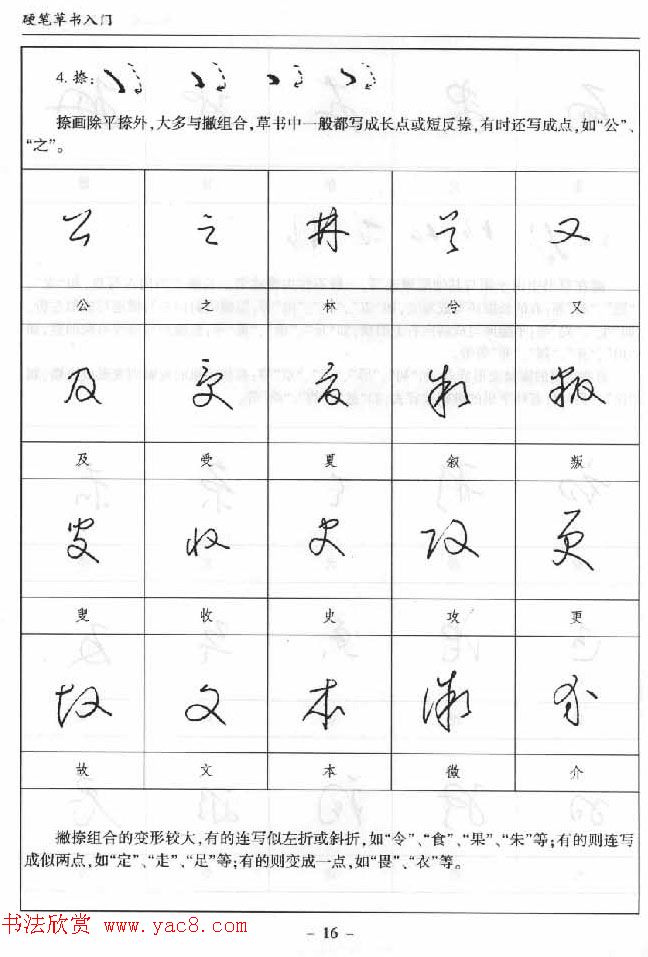 硬笔草书入门
4. 捺:
捺画除平捺外,大多与撇组合,草书中一般都写成长点或短反捺,有时还写成点,如“公”、
“之”。
公 之 林 兮 又
公 之 林 兮 又
及 受 夏 叙 叛
及 受 夏 叙 叛
叟 收 史 攻 更
叟 收 史 攻 更
故 文 本 微 介
故 文 本 微 介
撇捺组合的变形较大,有的连写似左折或斜折,如“令”、“食”、“果”、“朱”等;有的则连写
成似两点,如“定”、“走”、“足”等;有的则变成一点,如“畏”、“衣”等。
书法欣赏 www.yac8.com
- 16 -